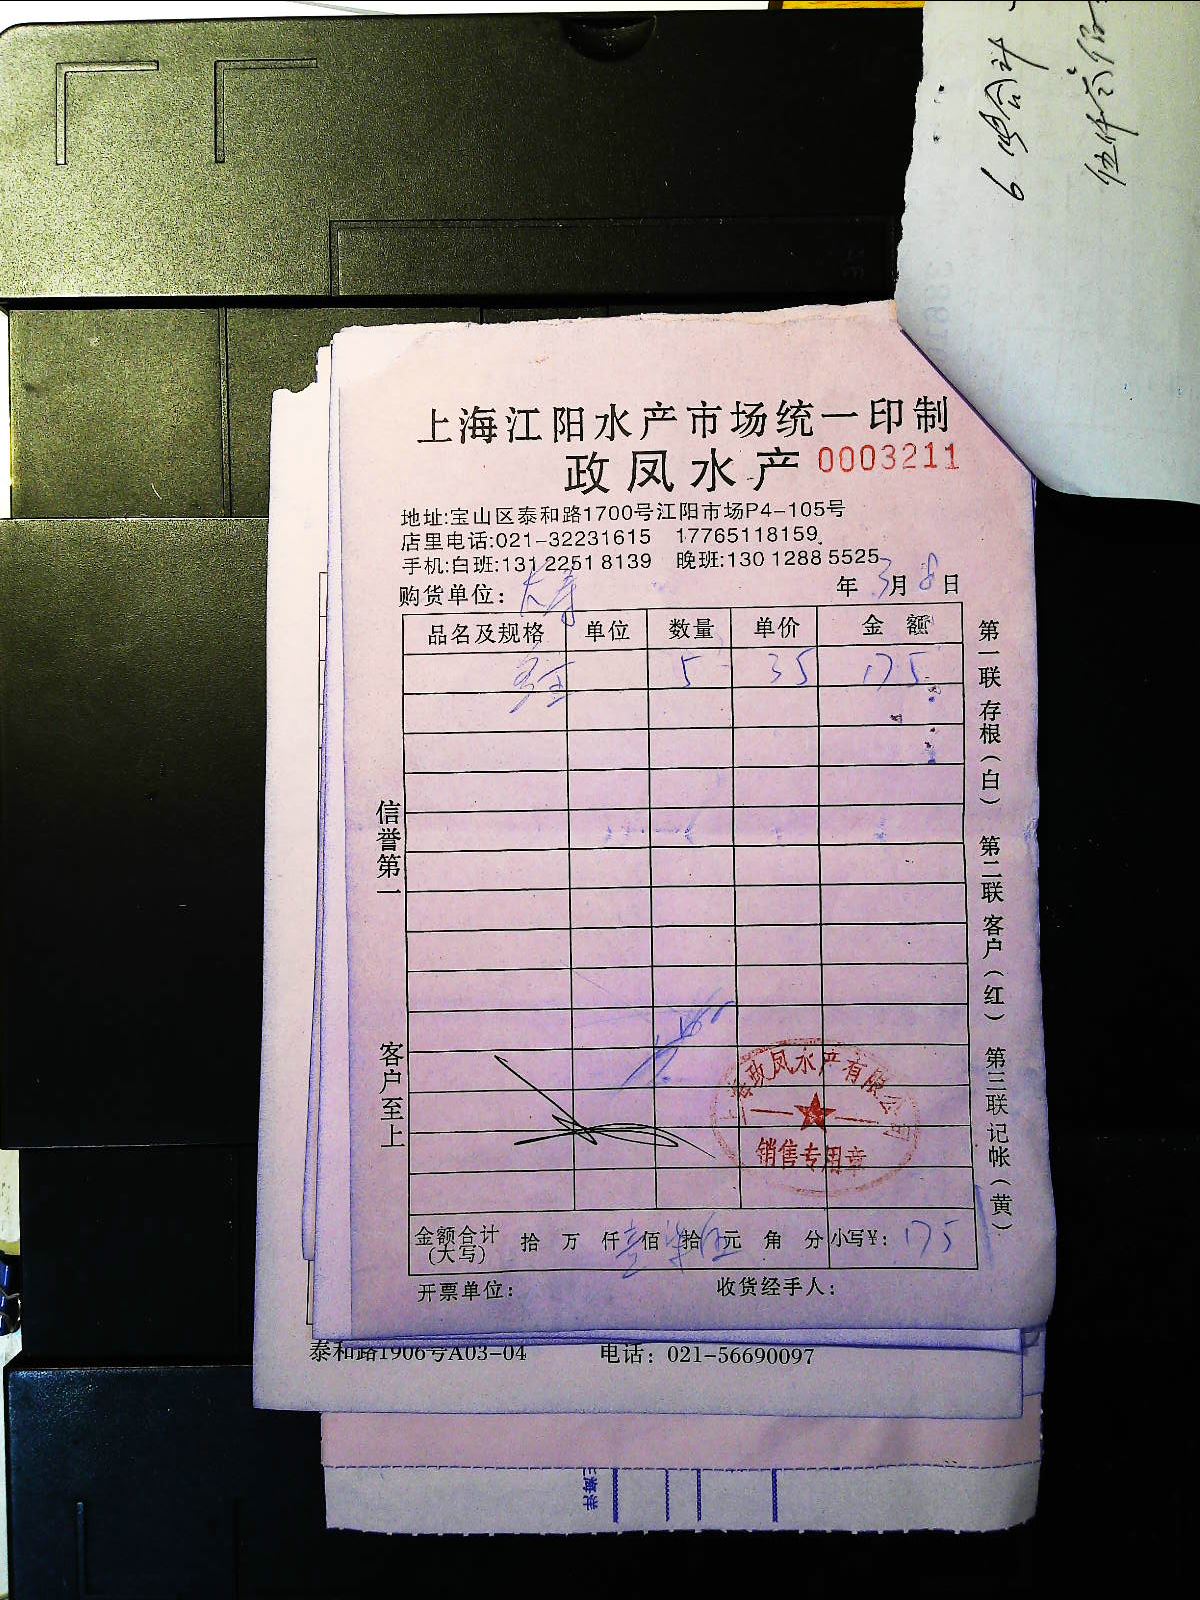 6 鸣合计
伍仟六佰
上海江阳水产市场统一印制
政凤水产 0003211
地址:宝山区泰和路1700号江阳市场P4-105号
店里电话:021-32231615 17765118159
手机:白班:131 2251 8139 晚班:130 1288 5525
购货单位: 年 3月 8日
品名及规格 单位 数量 单价 金额
5 35 175
信誉第一
客户至上
第一联 存根(白) 第二联 客户(红) 第三联 记帐(黄)
上海政凤水产有限公司
销售专用章
金额合计(大写) 拾 万 仟壹佰柒拾伍元 角 分 小写¥: 175
开票单位: 收货经手人:
泰和路1906号A03-04 电话: 021-56690097
上海洋